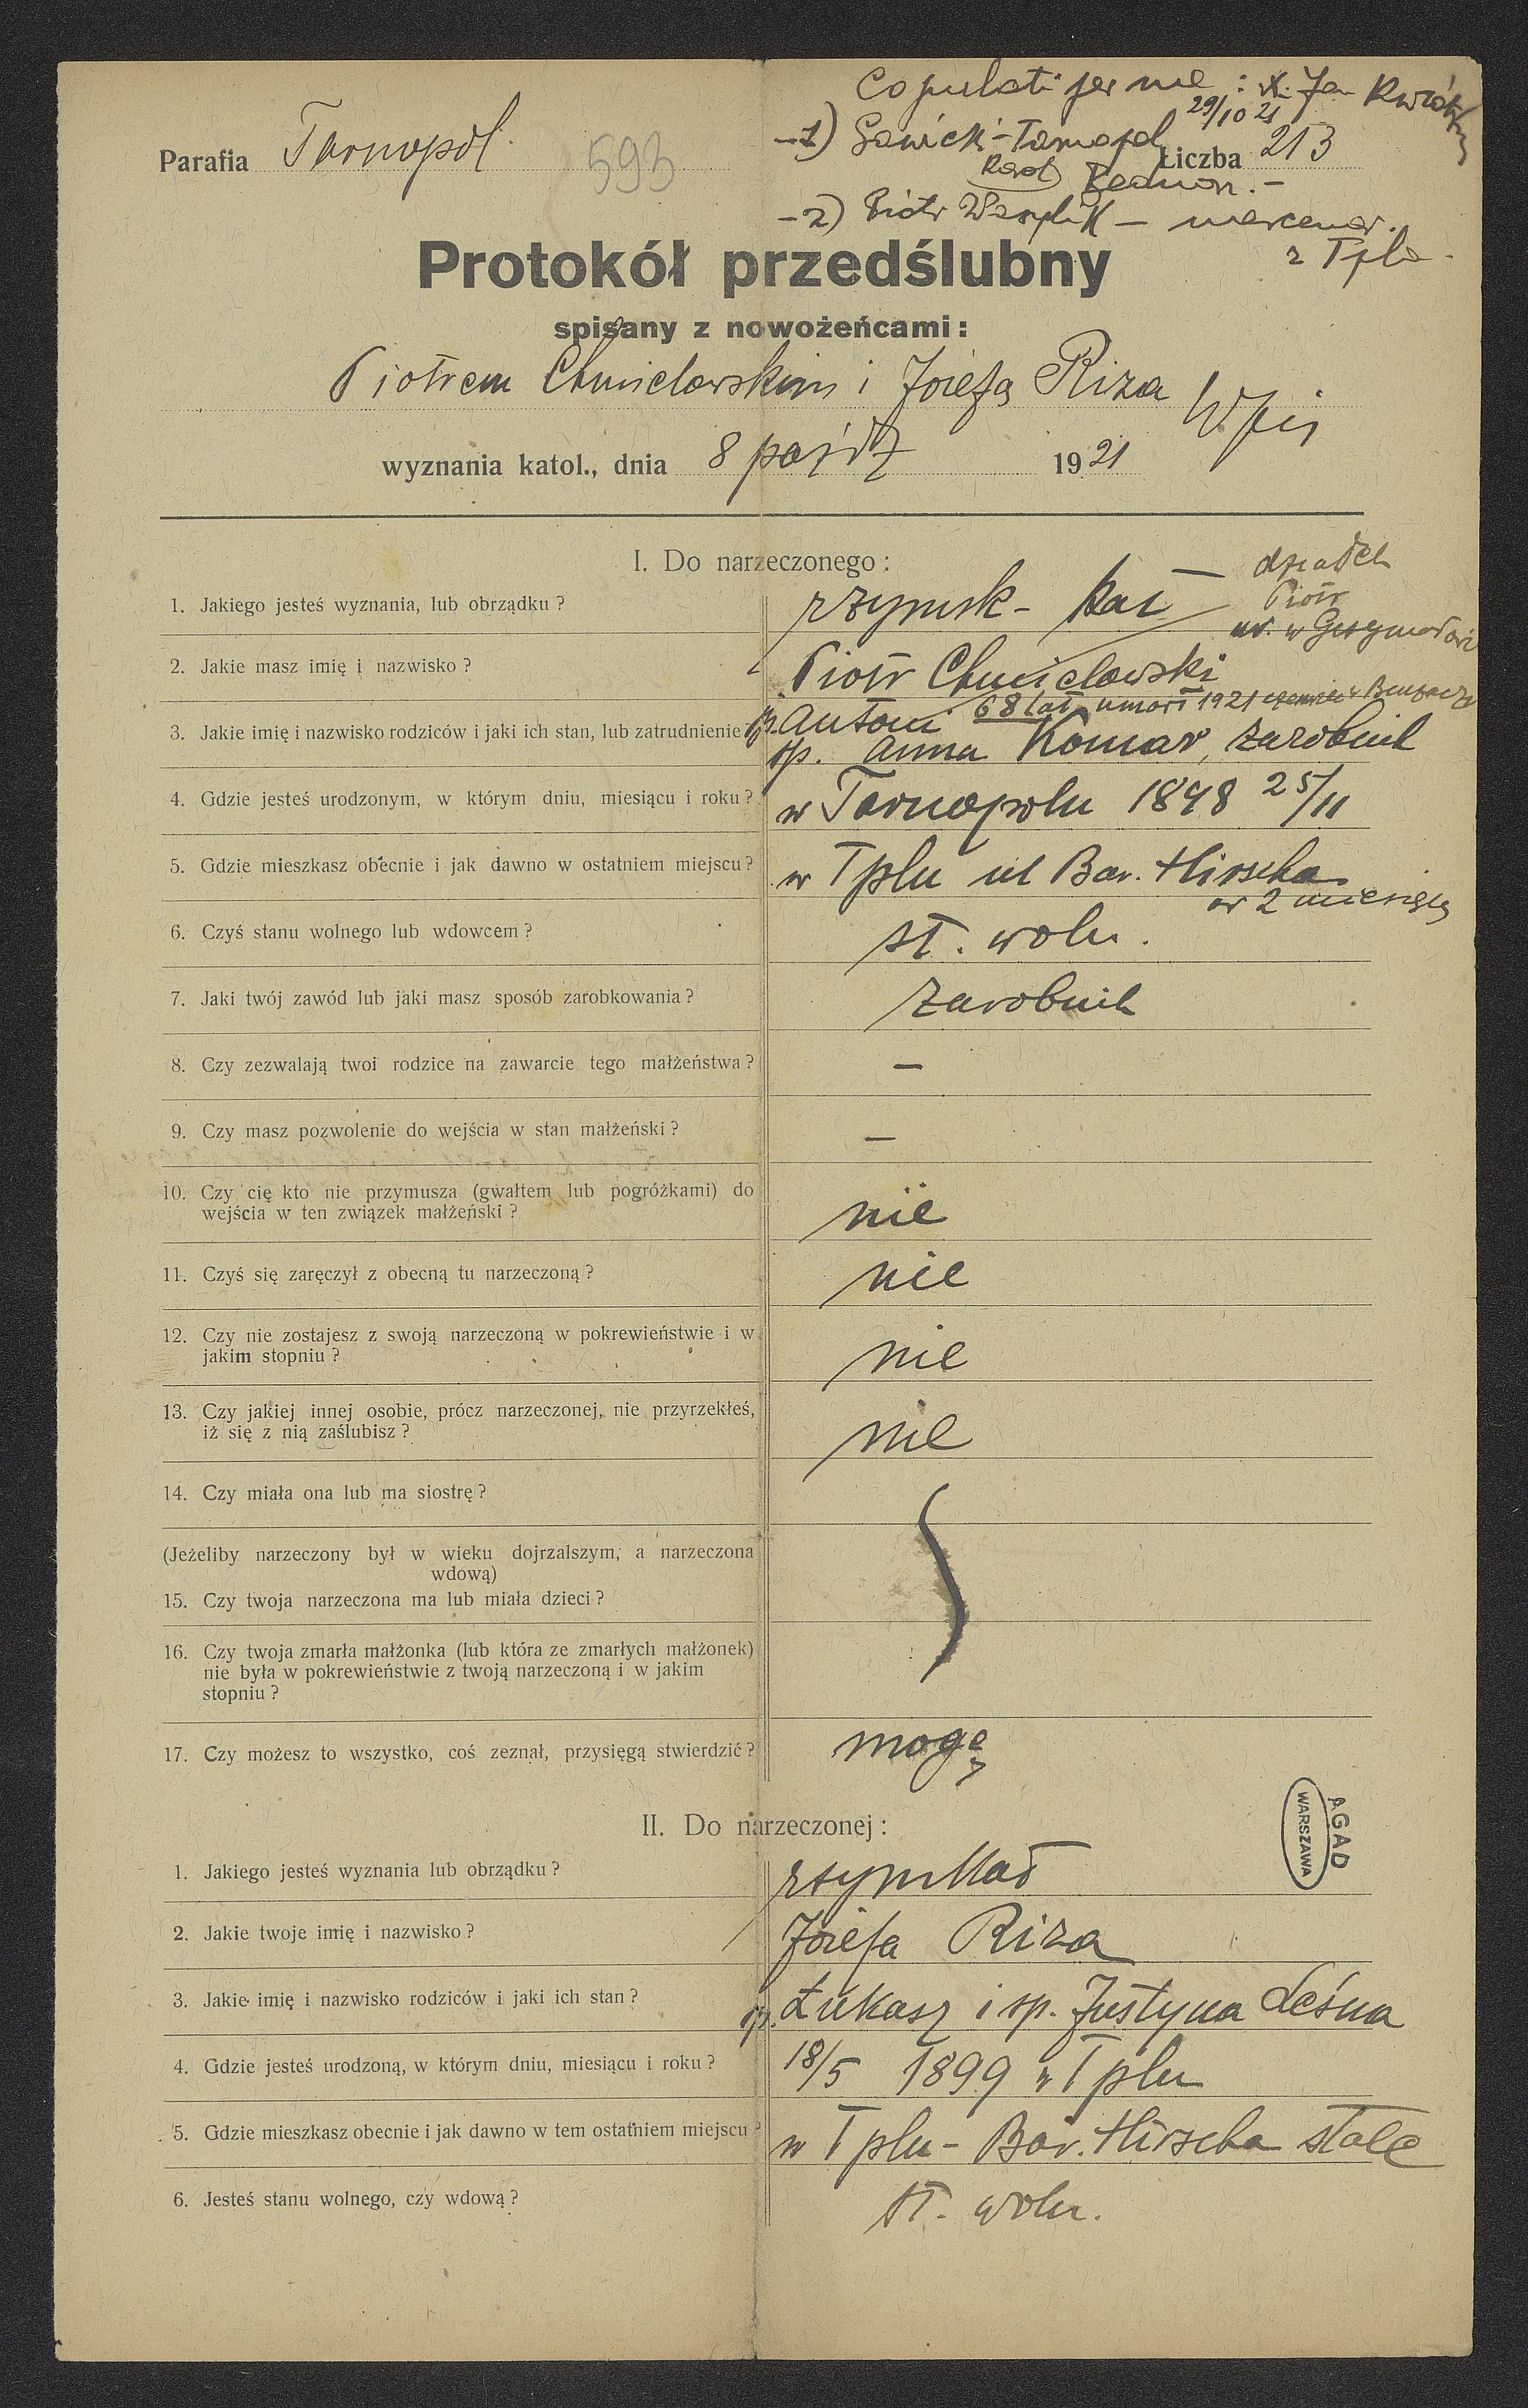 Copulati per me : x. Jan
29/10 21
Parafia Tarnopol
593
-1) Sawicki - Tarnopol
Liczba 213
Karol
-2) Piotr
z Tpla.
Protokół przedślubny
spisany z nowożeńcami:
Piotrem Chmielowskim i Józefą Riza
Wpis
wyznania katol., dnia 8 paźdz 1921
I. Do narzeczonego:
dziadek
Piotr
1. Jakiego jesteś wyznania, lub obrządku? rzymsk- kat
ur. w
2. Jakie masz imię i nazwisko? Piotr Chmielowski
68 lat umarł 1921
3. Jakie imię i nazwisko rodziców i jaki ich stan, lub zatrudnienie? śp. Antoni
śp. Anna Komar, zarobnik
4. Gdzie jesteś urodzonym, w którym dniu, miesiącu i roku? w Tarnopolu 1898 25/11
5. Gdzie mieszkasz obecnie i jak dawno w ostatniem miejscu? w Tplu ul Bar. Hirscha
od 2 miesięcy
6. Czyś stanu wolnego lub wdowcem? st. woln.
7. Jaki twój zawód lub jaki masz sposób zarobkowania? zarobnik
8. Czy zezwalają twoi rodzice na zawarcie tego małżeństwa? —
9. Czy masz pozwolenie do wejścia w stan małżeński? —
10. Czy cię kto nie przymusza (gwałtem lub pogróżkami) do
wejścia w ten związek małżeński? nie
11. Czyś się zaręczył z obecną tu narzeczoną? nie
12. Czy nie zostajesz z swoją narzeczoną w pokrewieństwie i w
jakim stopniu? nie
13. Czy jakiej innej osobie, prócz narzeczonej, nie przyrzekłeś,
iż się z nią zaślubisz? nie
14. Czy miała ona lub ma siostrę?
(Jeżeliby narzeczony był w wieku dojrzalszym, a narzeczona
wdową)
15. Czy twoja narzeczona ma lub miała dzieci?
16. Czy twoja zmarła małżonka (lub która ze zmarłych małżonek)
nie była w pokrewieństwie z twoją narzeczoną i w jakim
stopniu?
17. Czy możesz to wszystko, coś zeznał, przysięgą stwierdzić? mogę
AGAD
WARSZAWA
II. Do narzeczonej:
1. Jakiego jesteś wyznania lub obrządku? rzymkat
2. Jakie twoje imię i nazwisko? Józefa Riza
3. Jakie imię i nazwisko rodziców i jaki ich stan? śp. Łukasz i śp. Justyna Leśna
4. Gdzie jesteś urodzoną, w którym dniu, miesiącu i roku? 18/5 1899 w Tplu
5. Gdzie mieszkasz obecnie i jak dawno w tem ostatniem miejscu? w Tplu - Bar. Hirscha stale
6. Jesteś stanu wolnego, czy wdową? st. woln.